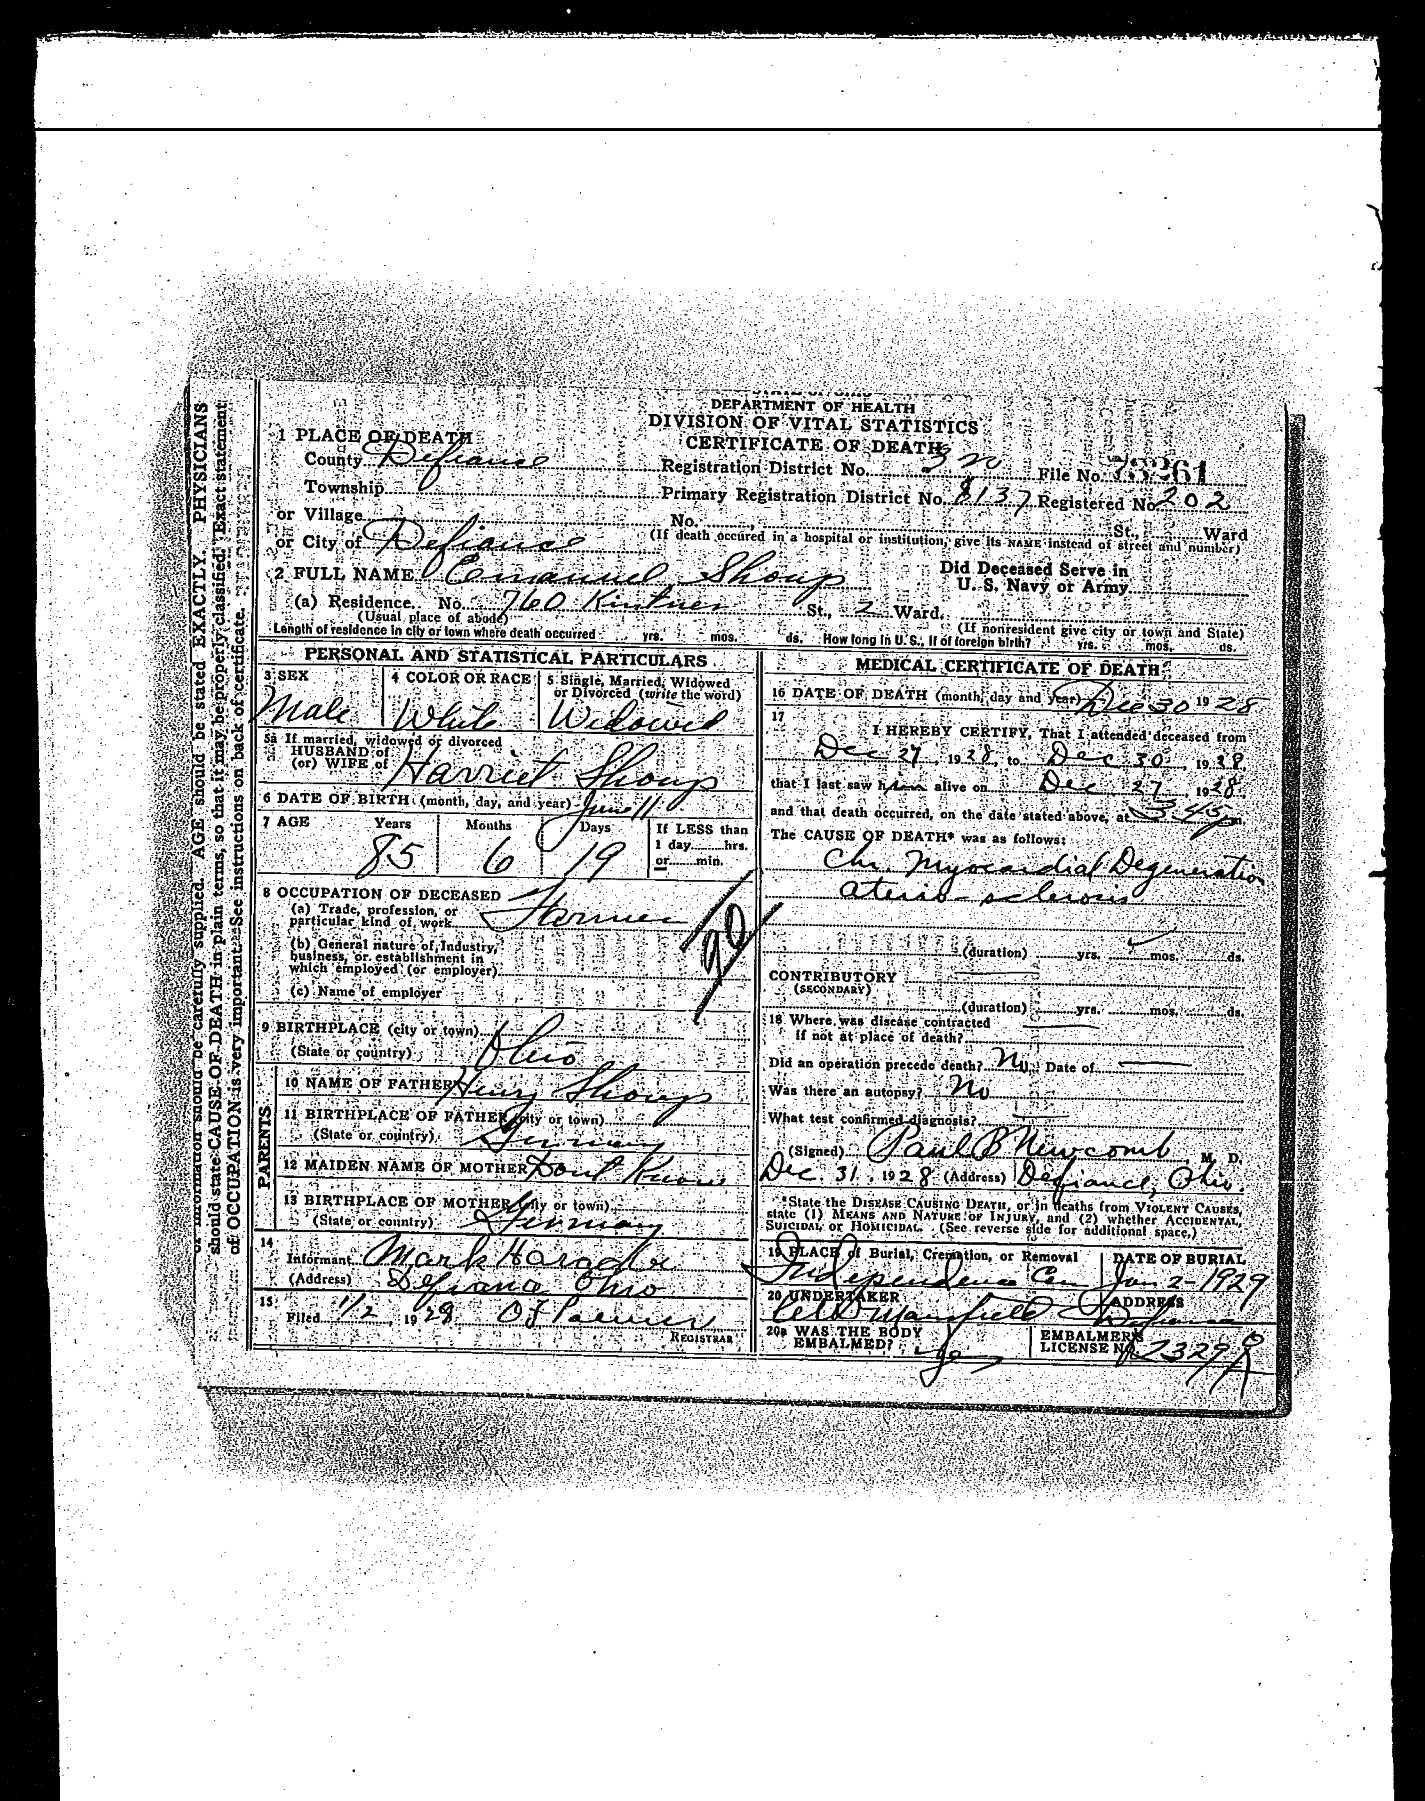 DEPARTMENT OF HEALTH
DIVISION OF VITAL STATISTICS
CERTIFICATE OF DEATH
1 PLACE OF DEATH
County Defiance Registration District No. File No. 73261
Township Primary Registration District No. 8137 Registered No. 202
or Village No. St., Ward
or City of Defiance (If death occured in a hospital or institution, give its NAME instead of street and number)
2 FULL NAME Emanuel Shoup Did Deceased Serve in
U. S. Navy or Army
(a) Residence. No. 760 Kintner St., 2 Ward.
(Usual place of abode) (If nonresident give city or town and State)
Length of residence in city or town where death occurred yrs. mos. ds. How long in U. S., if of foreign birth? yrs. mos. ds.
PERSONAL AND STATISTICAL PARTICULARS
3 SEX 4 COLOR OR RACE 5 Single, Married, Widowed
or Divorced (write the word)
Male White Widowed
5a If married, widowed or divorced
HUSBAND of
(or) WIFE of Harriet Shoup
6 DATE OF BIRTH (month, day, and year) June 11
7 AGE Years Months Days If LESS than
1 day hrs.
or min.
85 6 19
8 OCCUPATION OF DECEASED
(a) Trade, profession, or
particular kind of work Farmer
(b) General nature of Industry,
business, or establishment in
which employed (or employer)
(c) Name of employer
90
9 BIRTHPLACE (city or town)
(State or country) Ohio
PARENTS
10 NAME OF FATHER Henry Shoup
11 BIRTHPLACE OF FATHER (city or town)
(State or country) Germany
12 MAIDEN NAME OF MOTHER Dont Know
13 BIRTHPLACE OF MOTHER (city or town)
(State or country) Germany
14
Informant Mark
(Address) Defiance Ohio
15
Filed 1/2 1929
REGISTRAR
MEDICAL CERTIFICATE OF DEATH
16 DATE OF DEATH (month, day and year) Dec 30 1928
17
I HEREBY CERTIFY, That I attended deceased from
Dec 27, 1928, to Dec 30, 1928,
that I last saw him alive on Dec 27, 1928,
and that death occurred, on the date stated above, at 3 45 p m.
The CAUSE OF DEATH* was as follows:
Chr. Myocardial Degeneration
aterio-sclerosis
(duration) yrs. mos. ds.
CONTRIBUTORY
(SECONDARY)
(duration) yrs. mos. ds.
18 Where was disease contracted
if not at place of death?
Did an operation precede death? No Date of
Was there an autopsy? No
What test confirmed diagnosis?
(Signed) Paul B Newcomb, M. D.
Dec. 31, 1928 (Address) Defiance, Ohio.
*State the DISEASE CAUSING DEATH, or in deaths from VIOLENT CAUSES,
state (1) MEANS AND NATURE OF INJURY, and (2) whether ACCIDENTAL,
SUICIDAL, or HOMICIDAL. (See reverse side for additional space.)
19 PLACE of Burial, Cremation, or Removal DATE OF BURIAL
Independence Cem Jan 2 - 1929
20 UNDERTAKER ADDRESS
Mansfield Defiance
20a WAS THE BODY
EMBALMED? yes
EMBALMER'S
LICENSE No. 2329A
information should be carefully supplied. AGE should be stated EXACTLY. PHYSICIANS
should state CAUSE OF DEATH in plain terms, so that it may be properly classified. Exact statement
of OCCUPATION is very important. See instructions on back of certificate.